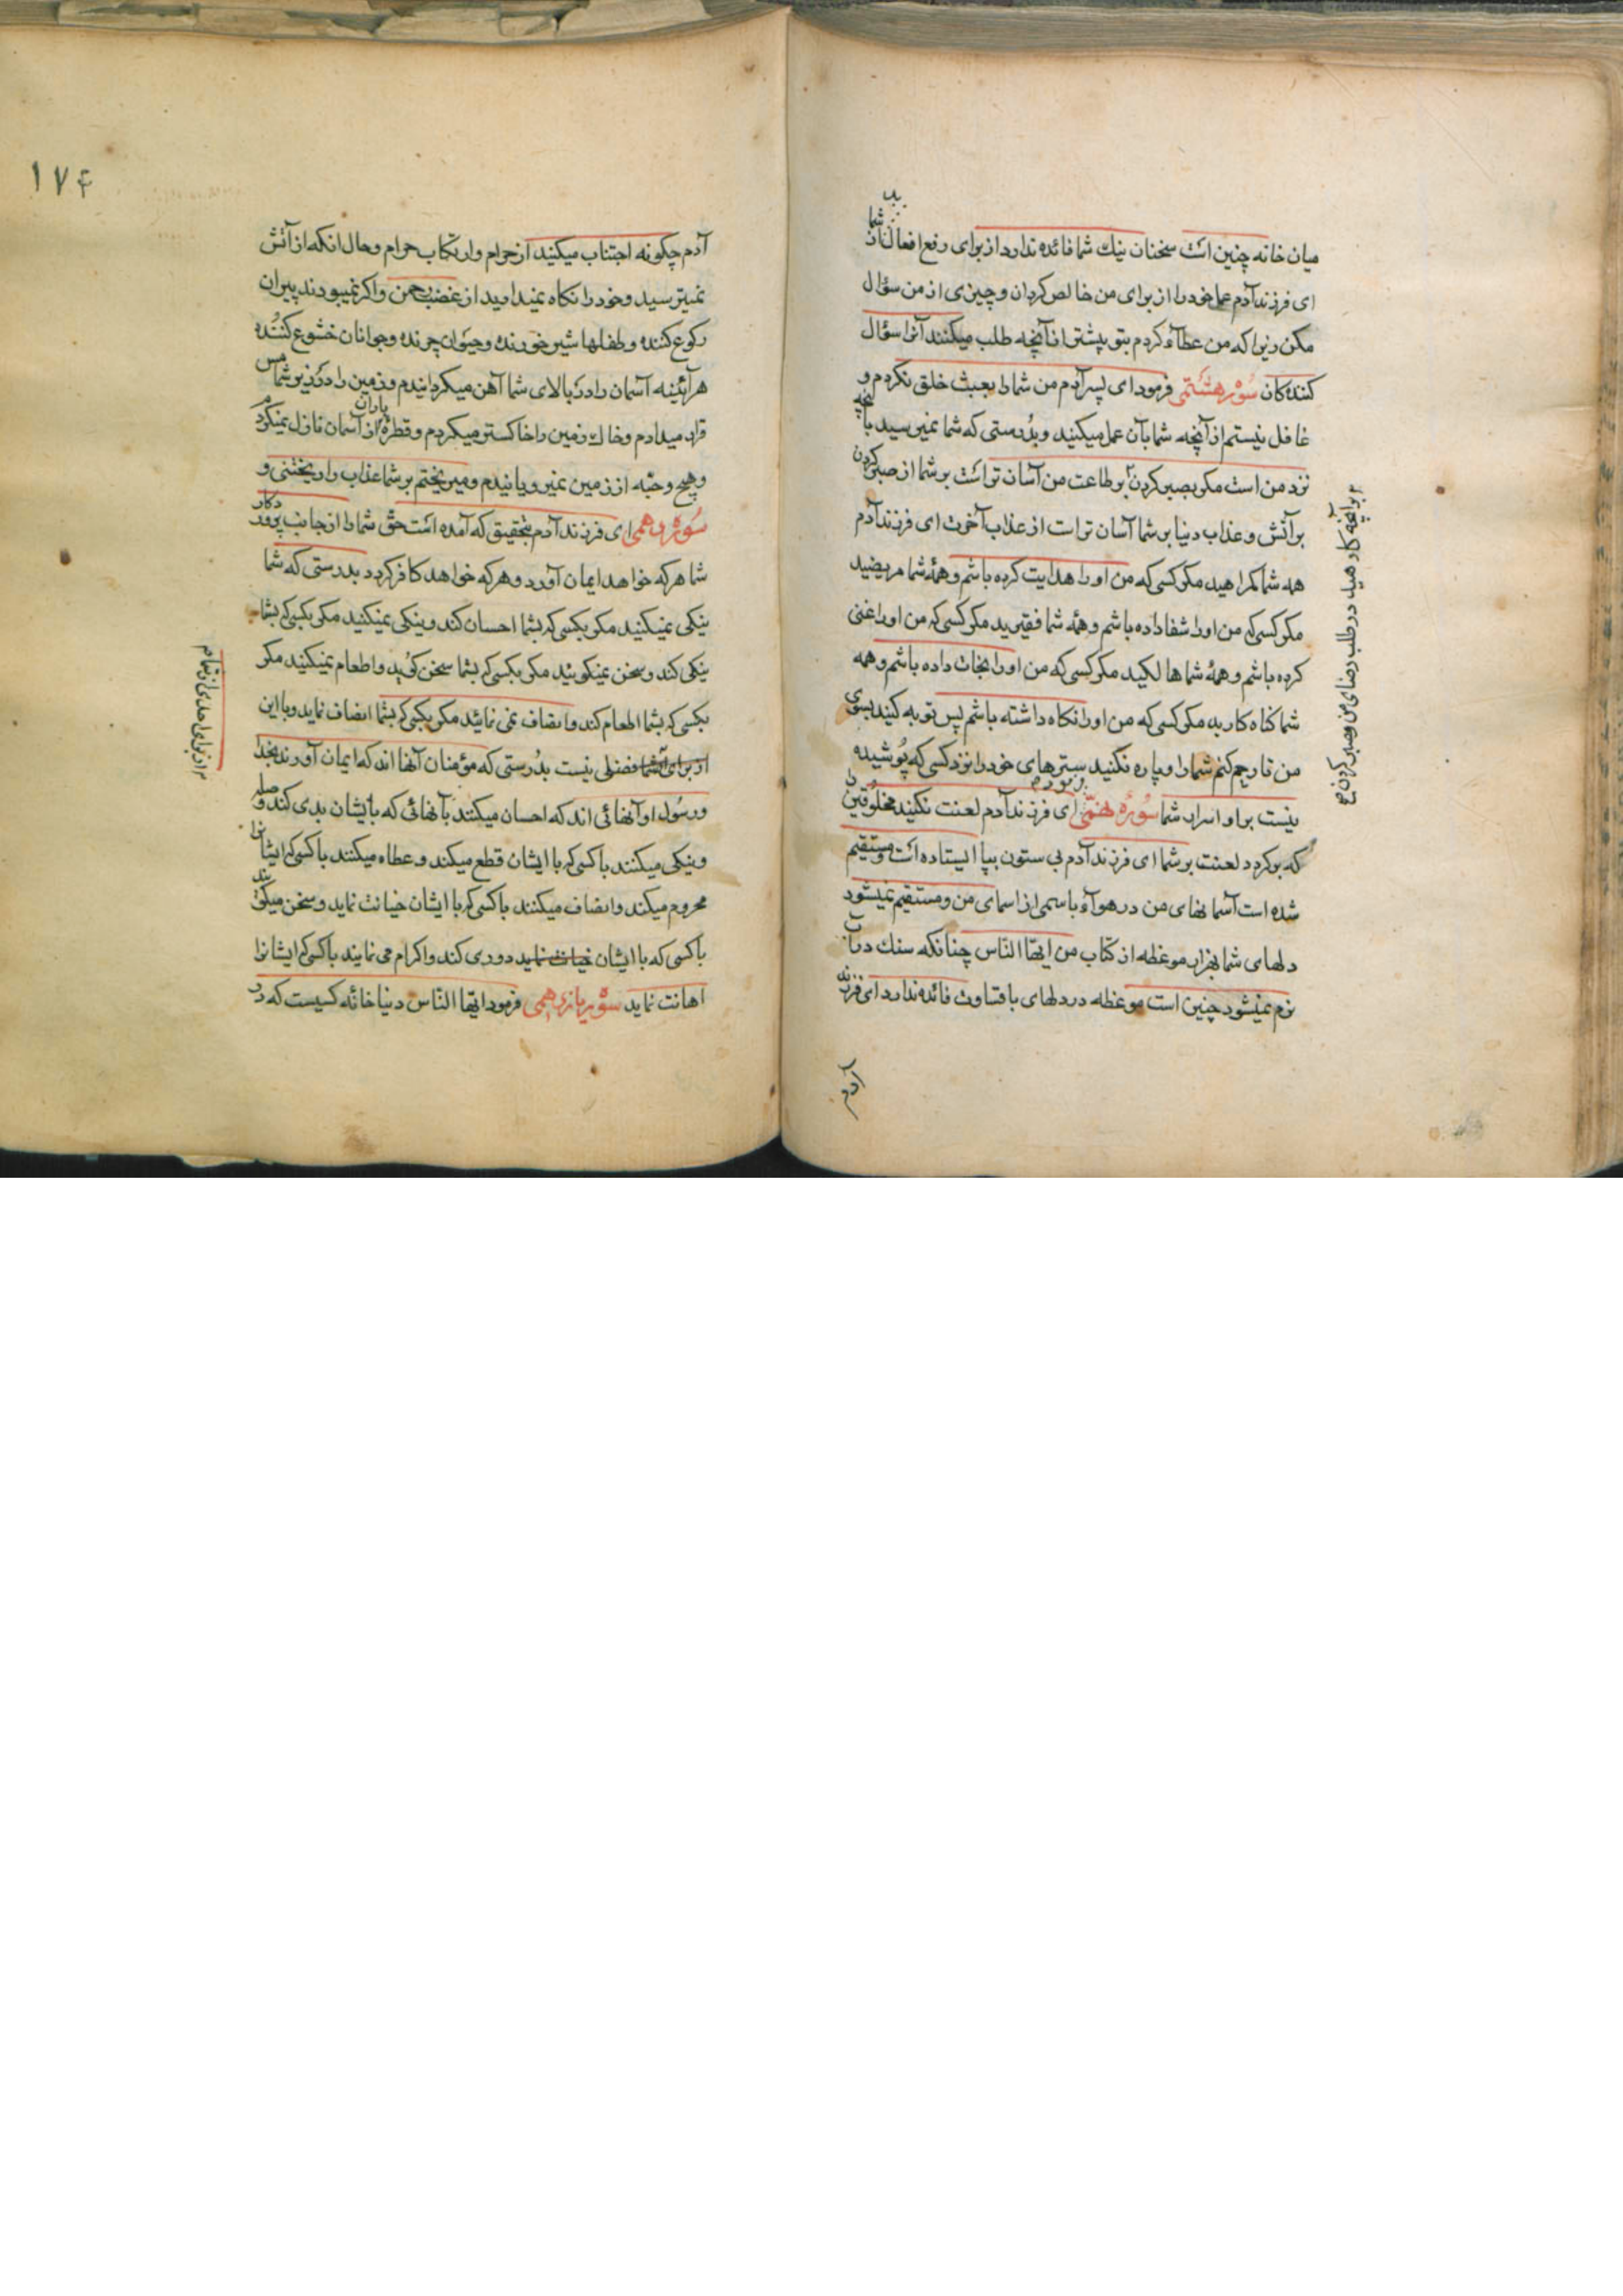 میان خانه چنین است سخنان نیك شما فائده ندارد از برای رفع افعال شما
ای فرزند آدم عمل خود را از برای من خالص کردان و چیزی از من سؤال
مکن زیرا که من عطآء کردم بتو پیشتر از آنچه طلب میکنند آنرا سؤال
کننده کان سُوْرهٔ هشتمی فرمود ای پسر آدم من شما را بعبث خلق نکردم و
غافل نیستم از آنچه شما بآن عمل میکنید و بدُرستی که شما نمیرسید بآنچه
نزد من است مکر بصبر کردن بر طاعت من آسان تر است بر شما از صبر کردن
بر آتش و عذاب دنیا بر شما آسان تر است از عذاب آخرت ای فرزند آدم
همه شما کمراهید مکر کسی که من او را هدایت کرده باشم و همهٔ شما مریضید
مکر کسی که من او را شفا داده باشم و همهٔ شما فقیرید مکر کسی که من او را غنی
کرده باشم و همهٔ شما هالکید مکر کسی که من او را نجات داده باشم و همه
شما کناه کارید مکر کسی که من او را نکاه داشته باشم پس توبه کنید بسوی
من تا رحم کنم شما را و پاره نکنید سترهای خود را نزد کسی که پُوشیده
نیست بر او اسرار شما سُورهٔ نهمی فرمود ای فرزند آدم لعنت نکنید مخلوقین را
که برکردد لعنت بر شما ای فرزند آدم بی ستون بپا ایستاده است و مستقیم
شده است آسمانهای من در هوآء باسمی از اسمای من و مستقیم نمیشود
دلهای شما بهزار موعظه از کتاب من ایّها النّاس چنانکه سنك در آب
نرم نمیشود چنین است موعظه در دلهای باقساوت فائده ندارد ای فرزند
بر آنچه کارهید در طلب رضای من و صبر کردن
آدم
۱۷۴
آدم چکونه اجتناب میکنید از حرام و ارتکاب حرام و حال انکه از آتش
نمیترسید و خود را نکاه نمیدارید از غضب رحمن و اکر نمیبودند پیران
رکوع کننده و طفلها شیر خورنده و حیَوان چرنده و جوانان خشوع کنُنده
هرآئینه آسمان را در بالای شما آهن میکردانیدم و زمین را در زیر شما مس
قرار میدادم و خاك زمین را خاکستر میکردم و قطرهٔ باران از آسمان نازل نمیکردم
و هیچ وحبّه از زمین نمیرویانیدم و میریختم بر شما عذاب را ریختنی و
سُورهٔ دهمی ای فرزند آدم بتحقیق که آمده است حقّ شما را از جانب پروردکار
شما هر که خواهد ایمان آورد و هر که خواهد کافر کردد بدرستی که شما
نیکی نمیکنید مکر بکسی که بشما احسان کند و نیکی نمیکنید مکر بکسی که بشما
نیکی کند و سخن نمیکوئید مکر بکسی که بشما سخن کوُید و اطعام نمیکنید مکر
بکسی که بشما اطعام کند و انصاف نمی نمائید مکر بکسی که بشما انصاف نماید و با این
از برای شما فضلی نیست بدُرستی که مؤمنان آنها اند که ایمان آورند بخدا
و رسُول او آنهائی اند که احسان میکنند بآنهائی که بایشان بدی کند و صله
و نیکی میکنند باکسی که با ایشان قطع میکند و عطاء میکنند باکسی که ایشانرا
محروم میکند و انصاف میکنند باکسی که با ایشان خیانت نماید و سخن میکویند
باکسی که با ایشان خیانت نماید دوری کند و اکرام می نمایند باکسی که ایشانرا
اهانت نماید سُورهٔ یازدهمی فرمود ایّها النّاس دنیا خانهٔ کسیست که در
از برای احدی از شما